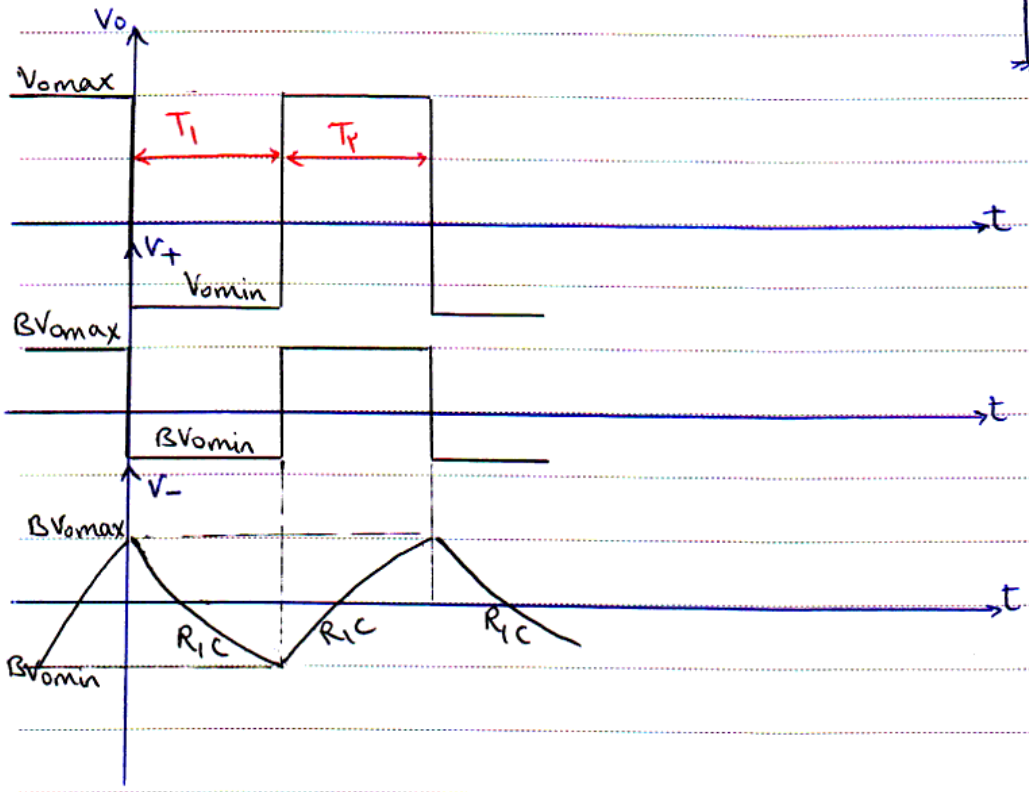 Vo
Vomax
T₁
T۲
t
V+
Vomin
BVomax
t
BVomin
V-
BVomax
t
R₁C
R₁C
R₁C
BVomin